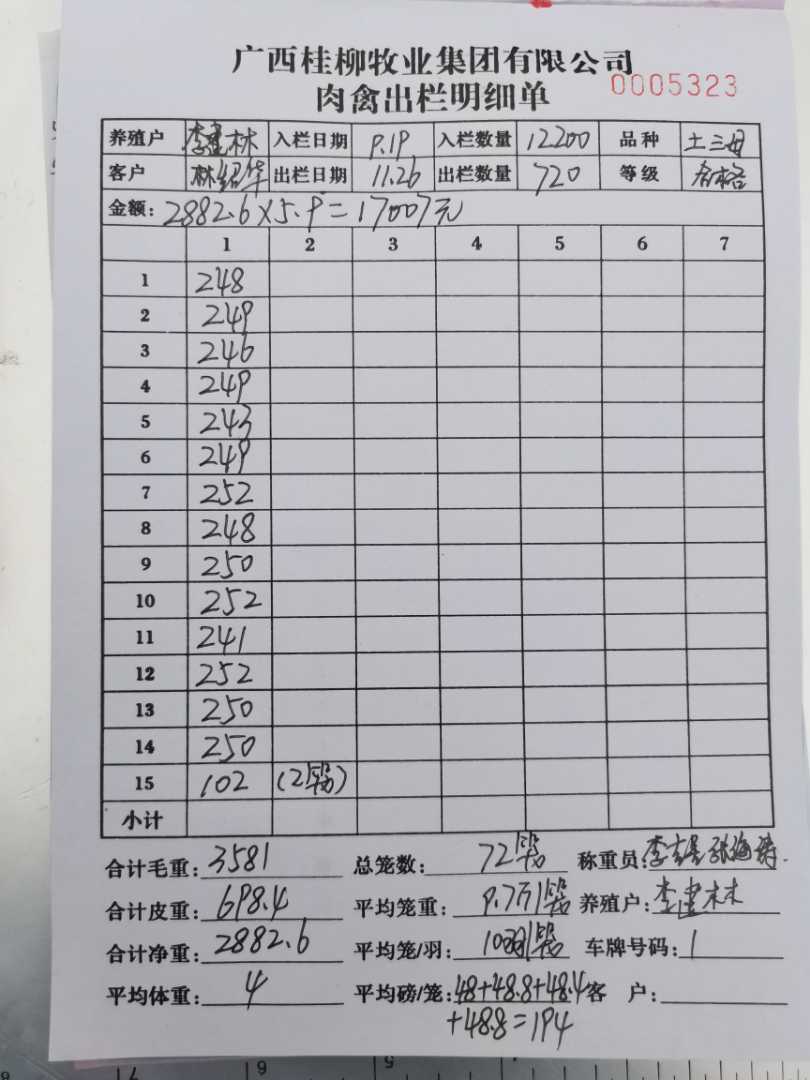 广西桂柳牧业集团有限公司
肉禽出栏明细单
0005323
养殖户 李建林 入栏日期 9.19 入栏数量 12200 品种 土三母
客户 林绍华 出栏日期 11.26 出栏数量 720 等级 合格
金额: 2882.6×5.9=17007元
1 2 3 4 5 6 7
1 248
2 249
3 246
4 249
5 243
6 249
7 252
8 248
9 250
10 252
11 241
12 252
13 250
14 250
15 102 (2笼)
小计
合计毛重: 3581 总笼数: 72笼 称重员:
合计皮重: 698.4 平均笼重: 9.7斤/笼 养殖户: 李建林
合计净重: 2882.6 平均笼/羽: 10羽/笼 车牌号码: 1
平均体重: 4 平均磅/笼: 48+48.8+48.4 客 户:
+48.8=194